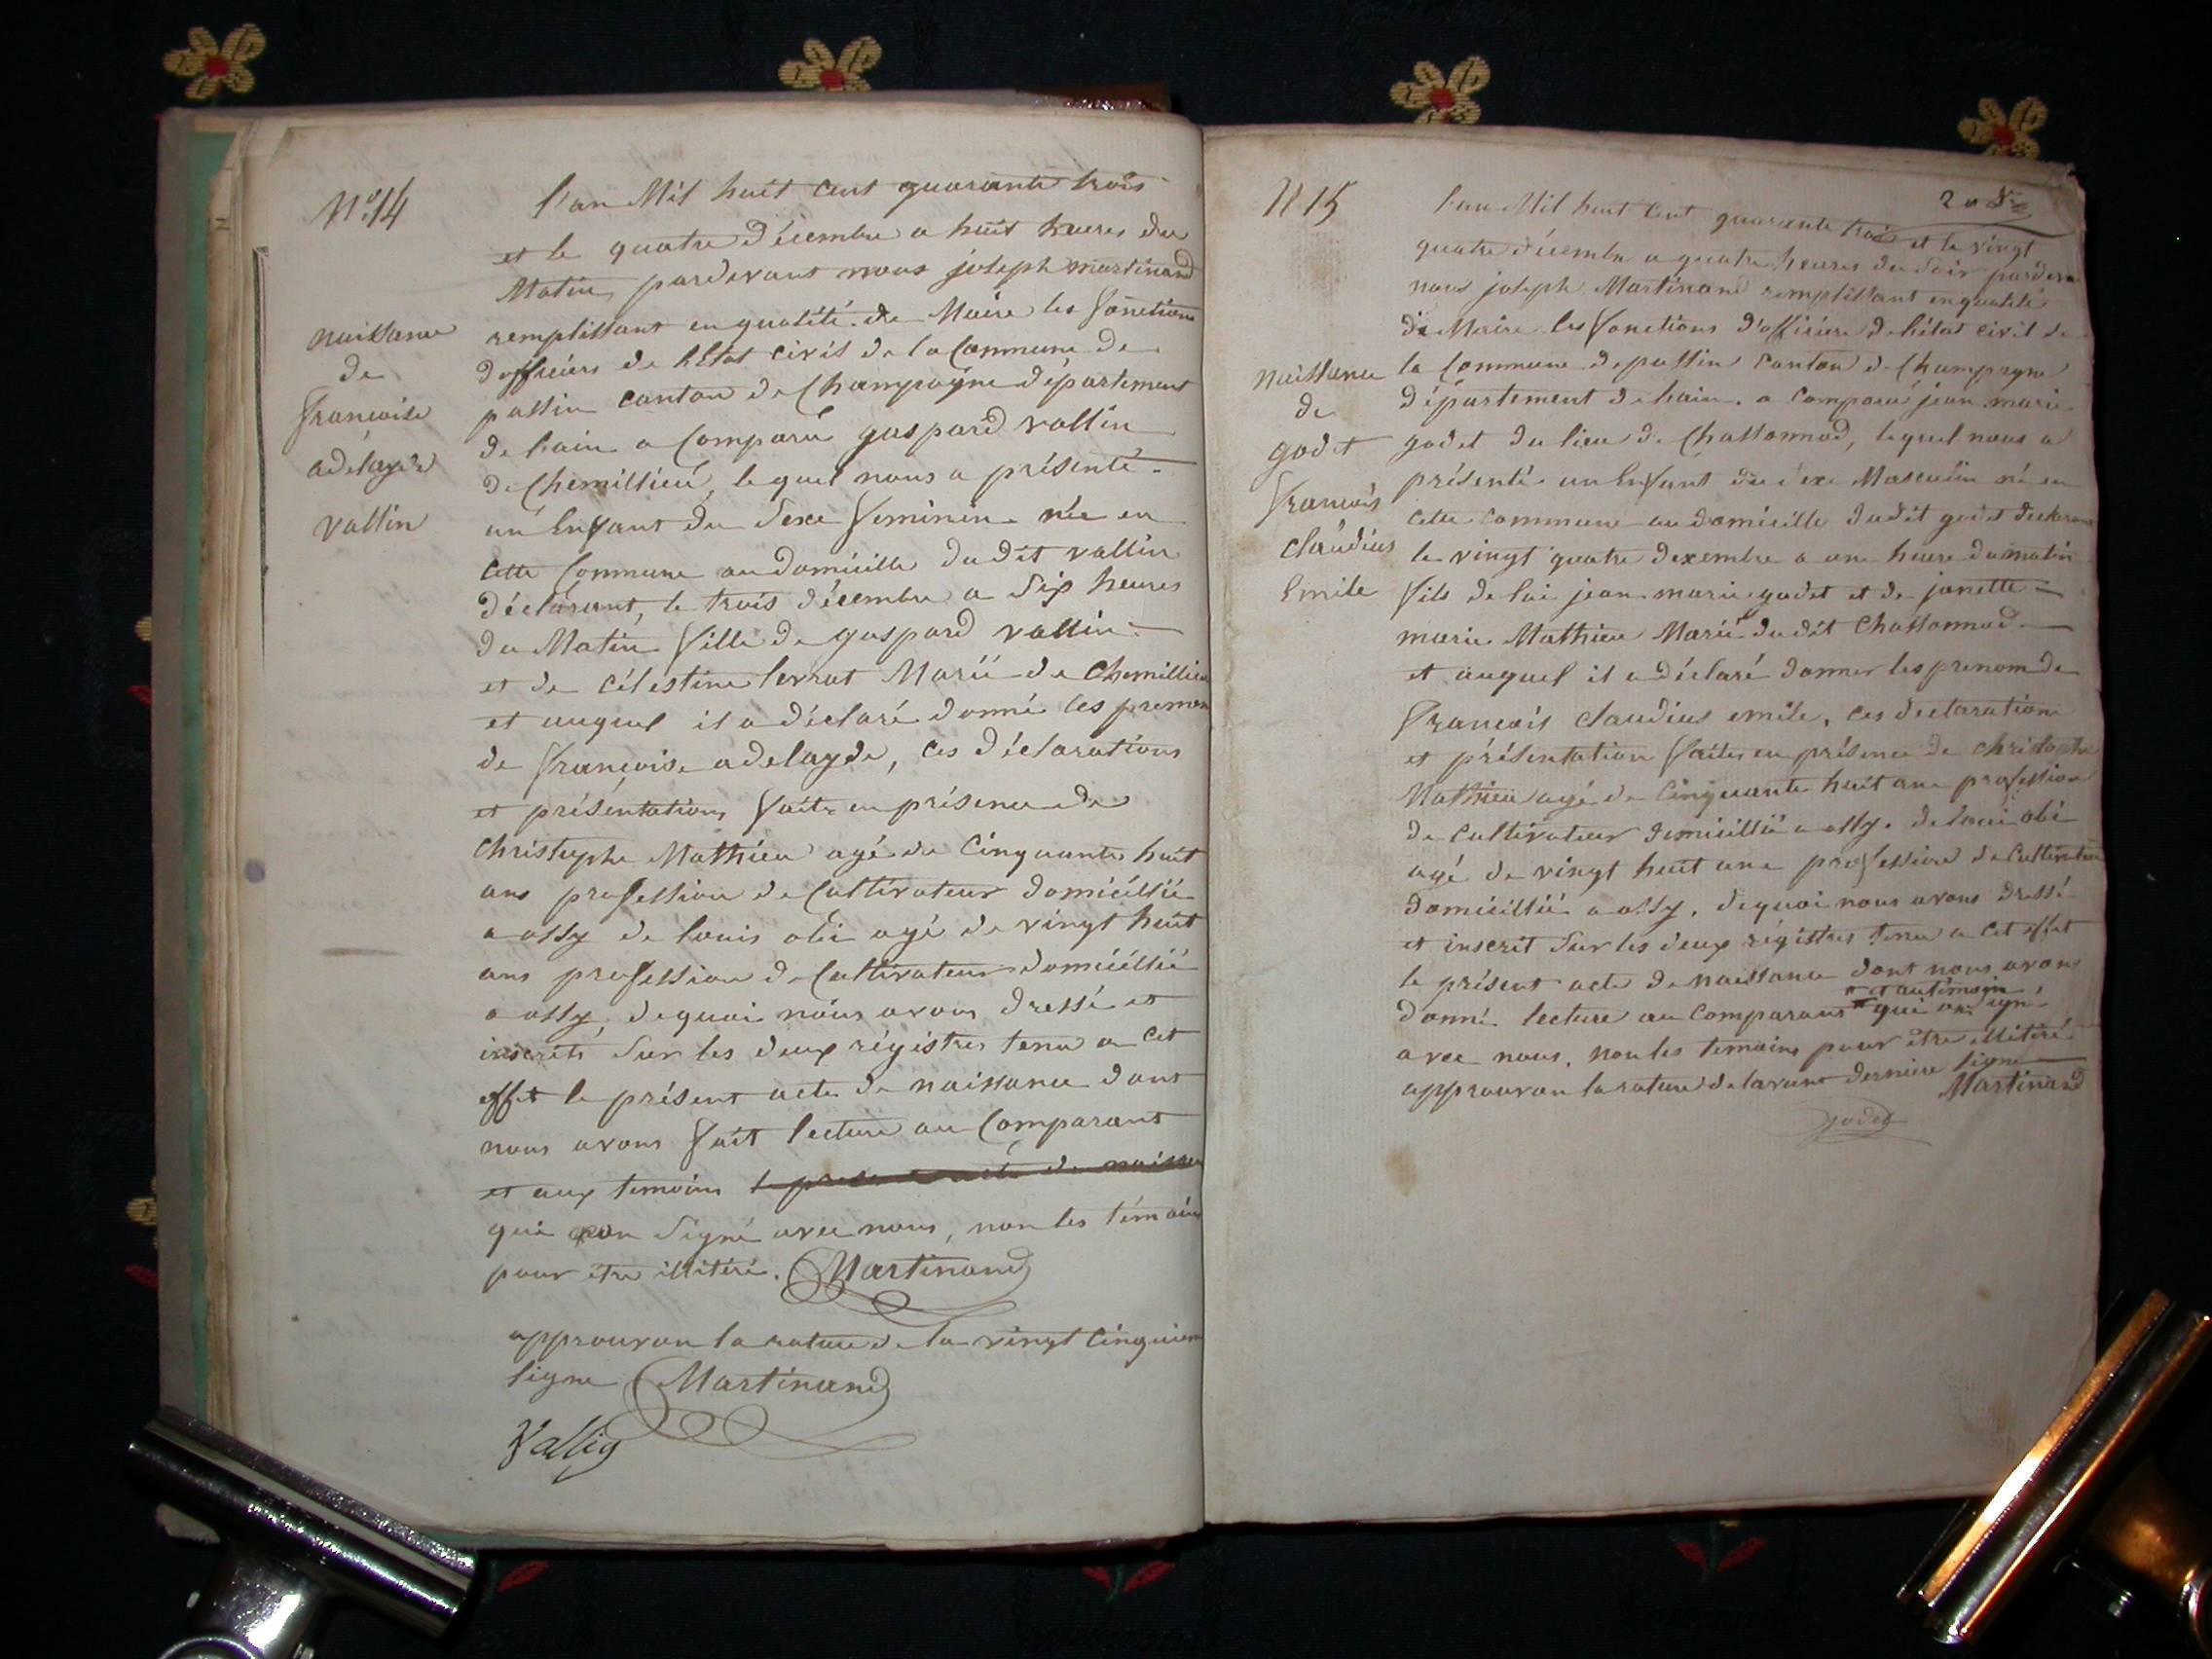 N° 14
naissance
de
francoise
adelayde
vallin
l'an Mil huit cent quarante trois
et le quatre décembre a huit heures du
Matin, pardevant nous joseph martinand
remplissant en qualité de Maire les fonctions
d'officiers de l'état civil de la Commune de
pollin canton de Champagne département
de lain a Comparu gaspard vallin
de Chemillieu, lequel nous a présenté
un Enfant du Sexe feminin née en
cette Commune au domicille du dit vallin
déclarant, le trois décembre a dix heures
du Matin fille de gaspard vallin
et de célestine Marié de Chemillieu
et auquel il a déclaré donné les prenon
de françoise adelayde, ces déclarations
et présentations faite en présence de
Christophe Mathieu agé de Cinquante huit
ans profession de Cultivateur domicillié
a ossy de louis obi agé de vingt huit
ans profession de Cultivateur domicillié
a ossy, de quoi nous avons dressé et
inscrits Sur les deux régistres tenu a cet
effet le présent acte de naissance dont
nous avons fait lecture au Comparant
et aux temoins le présent acte de naissan
qui on Signé avec nous, non les témoins
pour être illitéré. Martinand
approuvon la rature de la vingt Cinquiem
ligne Martinand
Vallin
N 15
naissance
de
godet
francois
claudius
Emile
l'an Mil huit Cent quarente trois et le vingt
quatre décembre a quatre heures du Soir pardeva
nous joseph Martinand remplissant en qualité
de Maire les fonctions d'officiere de l'état civil de
la Commune de pollin Canton de Champagne
département de lain. a Comparu jean marie
godet du lieu de Chassonnod, lequel nous a
présenté un Enfant du Sexe Masculin né en
cette commune au domicille dudit godet declaran
le vingt quatre dexembre a une heure du matin
fils de lui jean marie godet et de janette
marie Mathieu Marié du dit Chassonnod
et auquel il a déclaré donner les prenom de
francois claudius emile, ces declaration
et présentation faites en présence de christophe
Mathieu agé de Cinquante huit ans profession
de Cultivateur domicillié a ossy. de loui obi
agé de vingt huit ans profession de Cultivateur
domicillié a ossy, de quoi nous avons dressé
et inscrit Sur les deux régistres tenu a cet effet
le présent acte de naissance dont nous avons
et au temoin
donné lecture au Comparans qui on signé
avec nous. non les temoins pour être illitéré
approuvon la rature de lavant derniere ligne
Martinand
godet